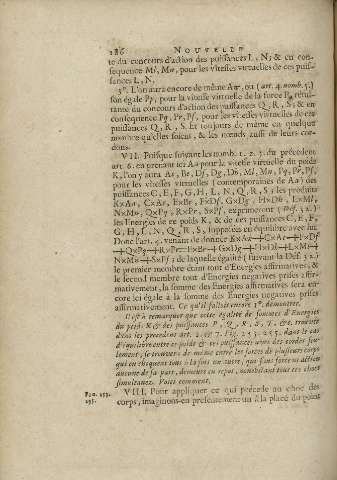 186 NOUVELLE
te du concours d'action des puissances L, N; & en con-
sequence Ml, Mn, pour les vitesses virtuelles de ces puis-
sances L, N.
3°. L'on aura encore de même Ap, ou (art. 4. nomb. 5.)
son égale Pp, pour la vitesse virtuelle de la force résul-
tante du concours d'action des puissances Q, R, S; & en
consequence Pp, Pr, Ps, pour les vitesses virtuelles de ces
puissances Q, R, S. Et toujours de même en quelque
nombre qu'elles soient, & les nœuds aussi de leurs cor-
dons.
VII. Puisque suivant les nomb. 1. 2. 3. du précedent
art. 6. en prenant ici Aa pour la vitesse virtuelle du poids
K, l'on y aura Ac, Be, Df, Dg, Dh, Ml, Mn, Pp, Pr, Ps,
pour les vitesses virtuelles (contemporaines de Aa) des
puissances C, E, F, G, H, L, N, Q, R, S; les produits
K×Aa, C×Ac, E×Be, F×Df, G×Dg, H×Dh, L×Ml,
N×Mn, Q×Pp, R×Pr, S×Ps, exprimeront (Def. 32.)
les Energies de ce poids K, & de ces puissances C, E, F,
G, H, L, N, Q, R, S, supposées en équilibre avec lui.
Donc l'art. 5. venant de donner
de laquelle égalité (suivant la Déf. 32.)
le premier membre étant tout d'Energies affirmatives, &
le second membre tout d'Energies negatives prises affir-
mativement, la somme des Energies affirmatives sera en-
core ici égale à la somme des Energies negatives prises
affirmativement. Ce qu'il falloit encore 3°. démontrer.
C'est à remarquer que cette égalité de sommes d'Energies
du poids K & des puissances P, Q, R, S, T, &c. trouvée
dans les précedens art. dans le cas
d'équilibre entre ce poids & ces puissances avec des cordes seu-
lement, se trouvera de même entre les forces de plusieurs corps
qui en choquent tous à la fois un autre, que sans force ni action
aucune de sa part, demeure en repos, nonobstant tous ces chocs
simultanez. Voici comment.
Fig. 193. VIII. Pour appliquer ce qui précede au choc des
corps, imaginons-en présentement un à la place du point